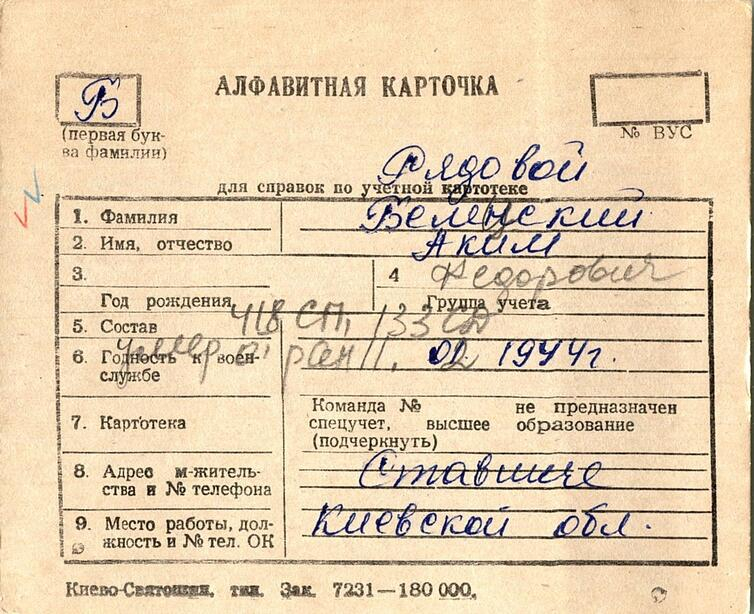 АЛФАВИТНАЯ КАРТОЧКА
Б
(первая бук-
ва фамилии)
№ ВУС
Рядовой
для справок по учетной картотеке
1. Фамилия Беленский
2. Имя, отчество Аким
3. 4 Федорович
Год рождения Группа учета
418 СП, 133 СД
5. Состав
умер от ран 11. 02 1944г.
6. Годность к воен-
службе
Команда № не предназначен
7. Картотека спецучет, высшее образование
(подчеркнуть)
8. Адрес м-житель-
ства и № телефона Ставище
9. Место работы, дол-
жность и № тел. ОК Киевской обл.
Киево-Святошин, тип. Зак. 7231—180 000.